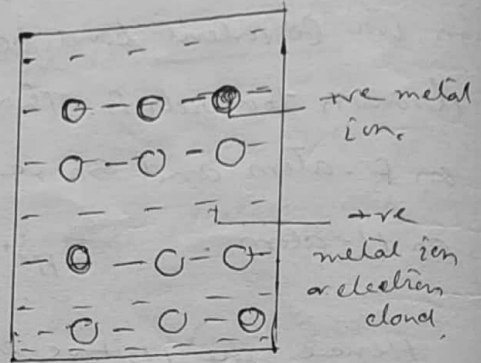 +ve metal
ion.
+ve
metal ion
or electron
cloud.